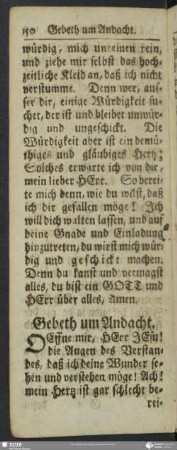 150 Gebeth um Andacht.
würdig, mich unreinen rein,
und ziehe mir selbst das hoch-
zeitliche Kleid an, daß ich nicht
verstumme. Denn wer, aus-
ser dir, einige Würdigkeit su-
chet, der ist und bleibet unwür-
dig und ungeschickt. Die
Würdigkeit aber ist ein demü-
thiges und gläubiges Hertz;
Solches erwarte ich von dir,
mein lieber HErr. So berei-
te mich denn, wie du wilst, daß
ich dir gefallen möge! Ich
will dich walten lassen, und auf
deine Gnade und Einladung
hinzutreten, du wirst mich wür-
dig und geschickt machen.
Denn du kanst und vermagst
alles, du bist ein GOTT und
HErr über alles, Amen.
Gebeth um Andacht.
OEffne mir, HErr JEsu!
die Augen des Verstan-
des, daß ich deine Wunder se-
hen und verstehen möge! Ach!
mein Hertz ist gar schlecht be-
rei-